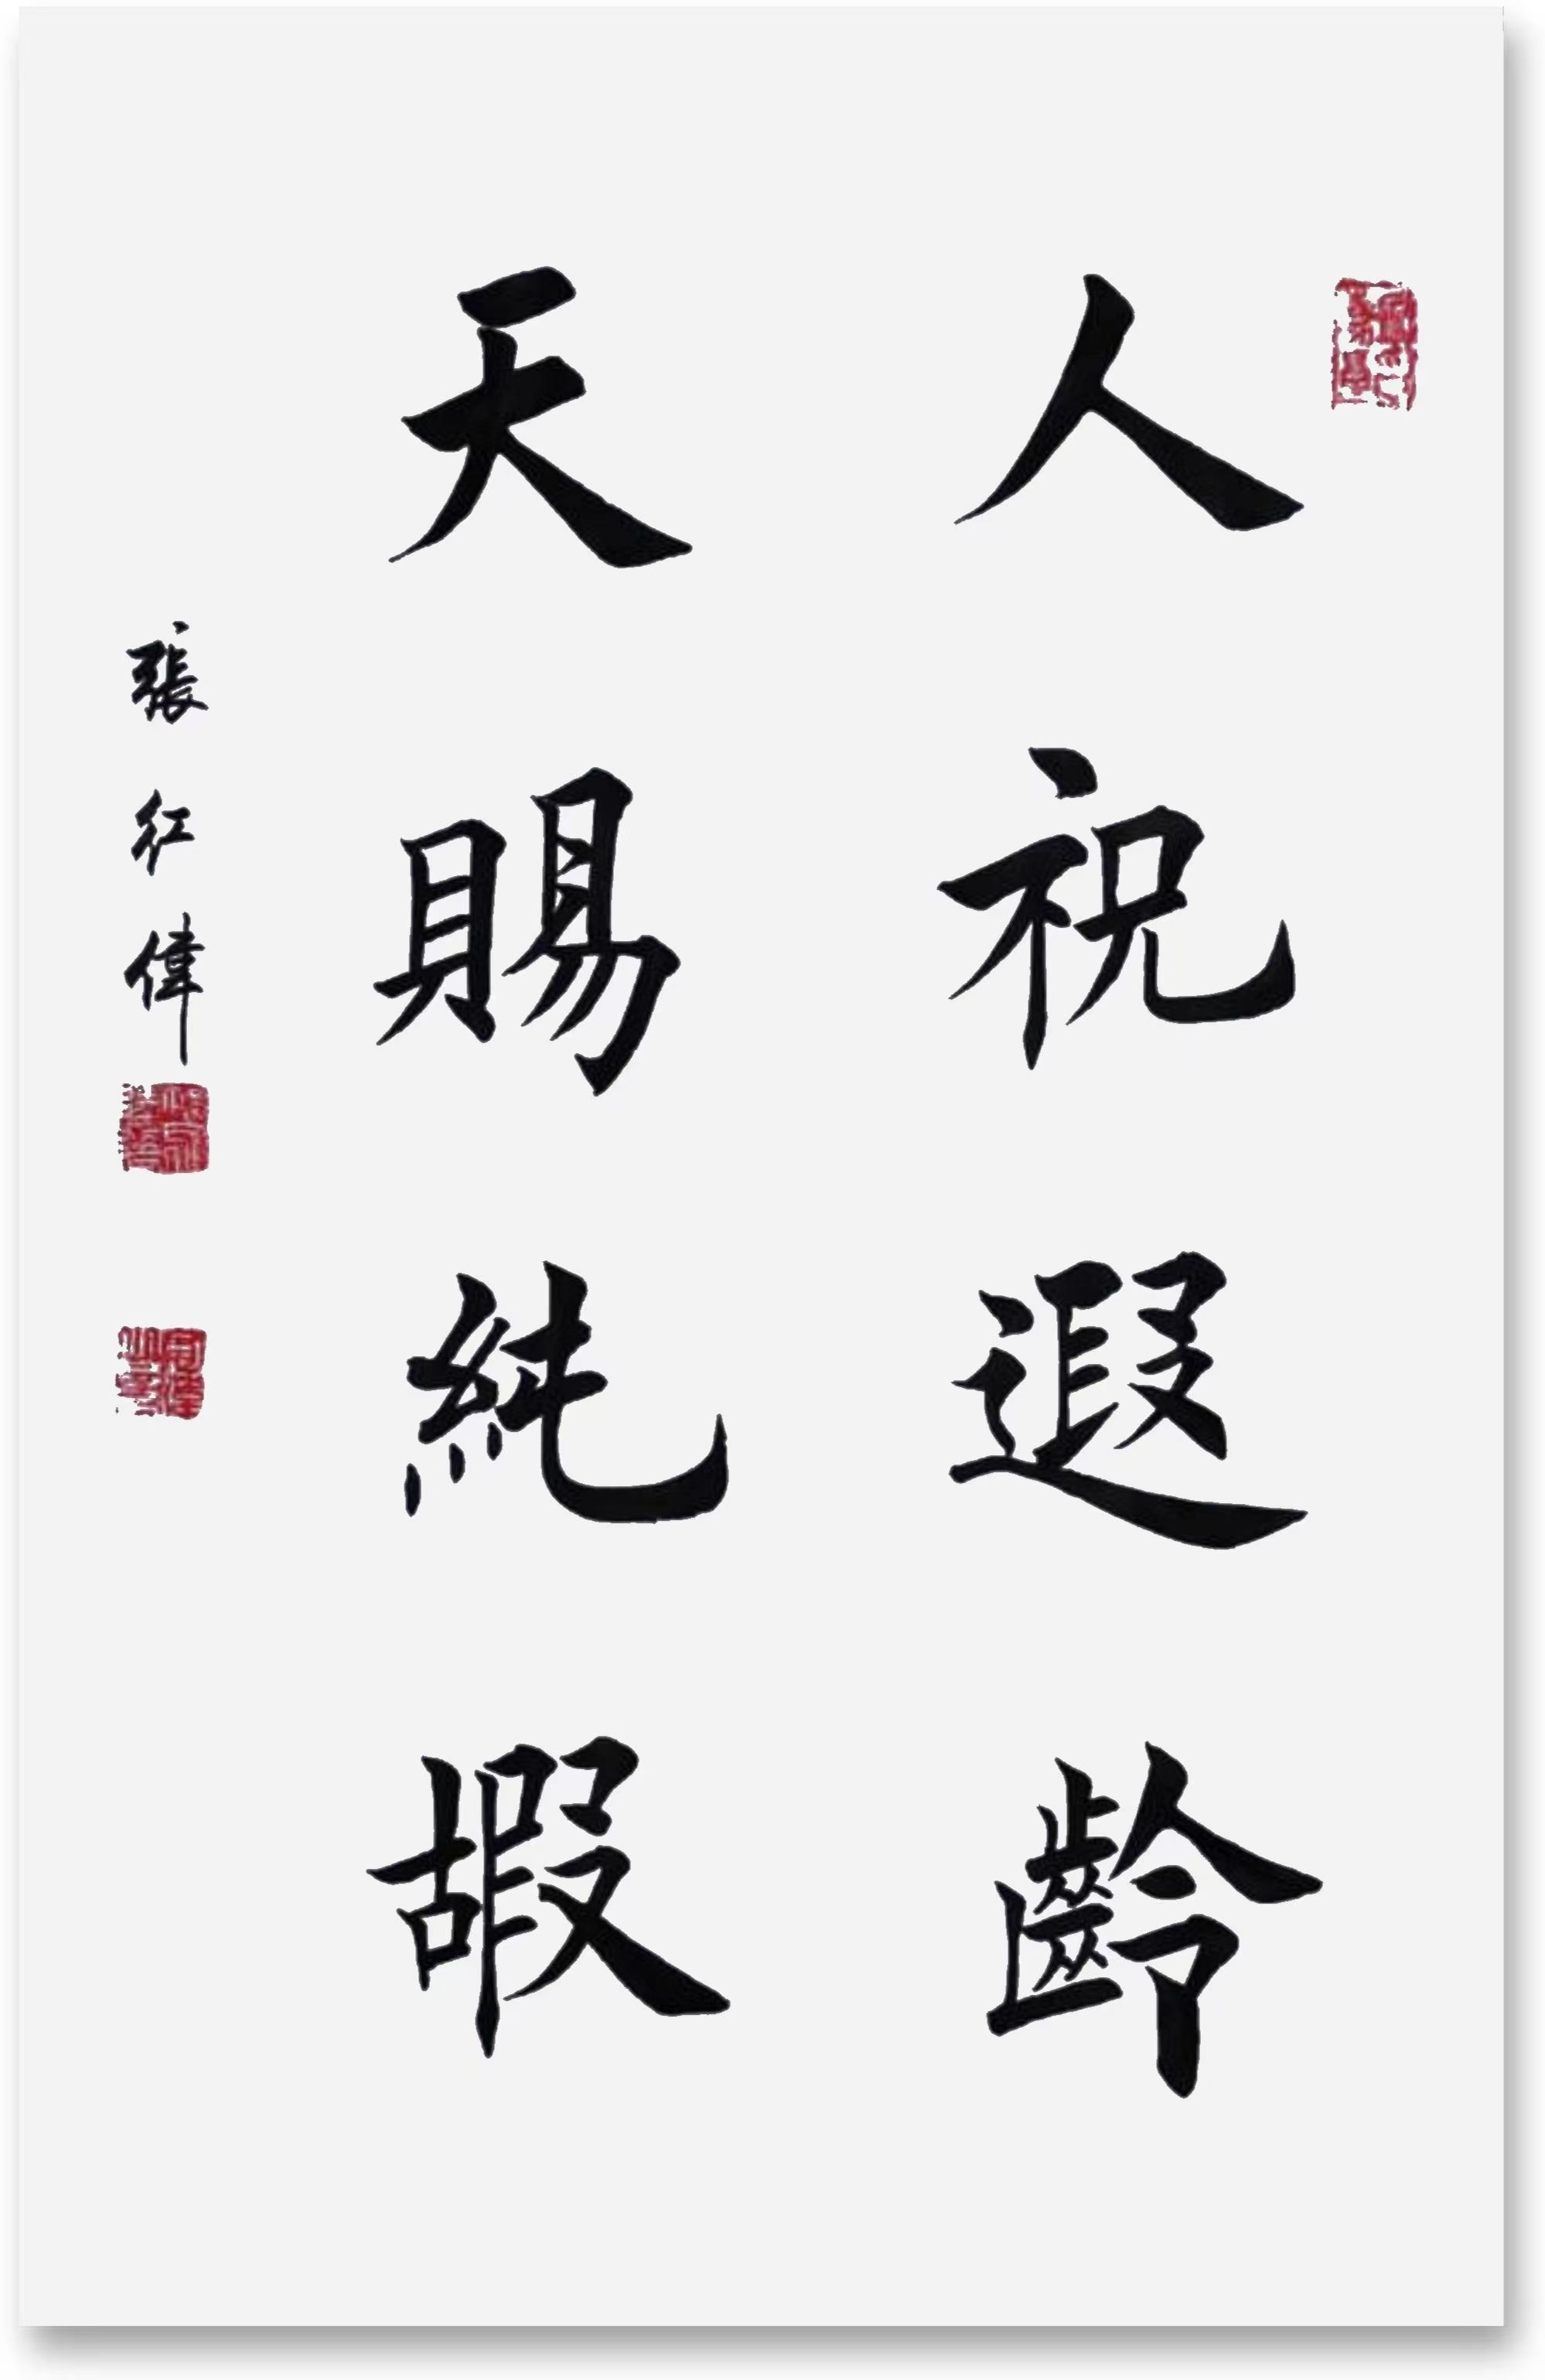 人祝遐齡
天賜純嘏
張紅偉